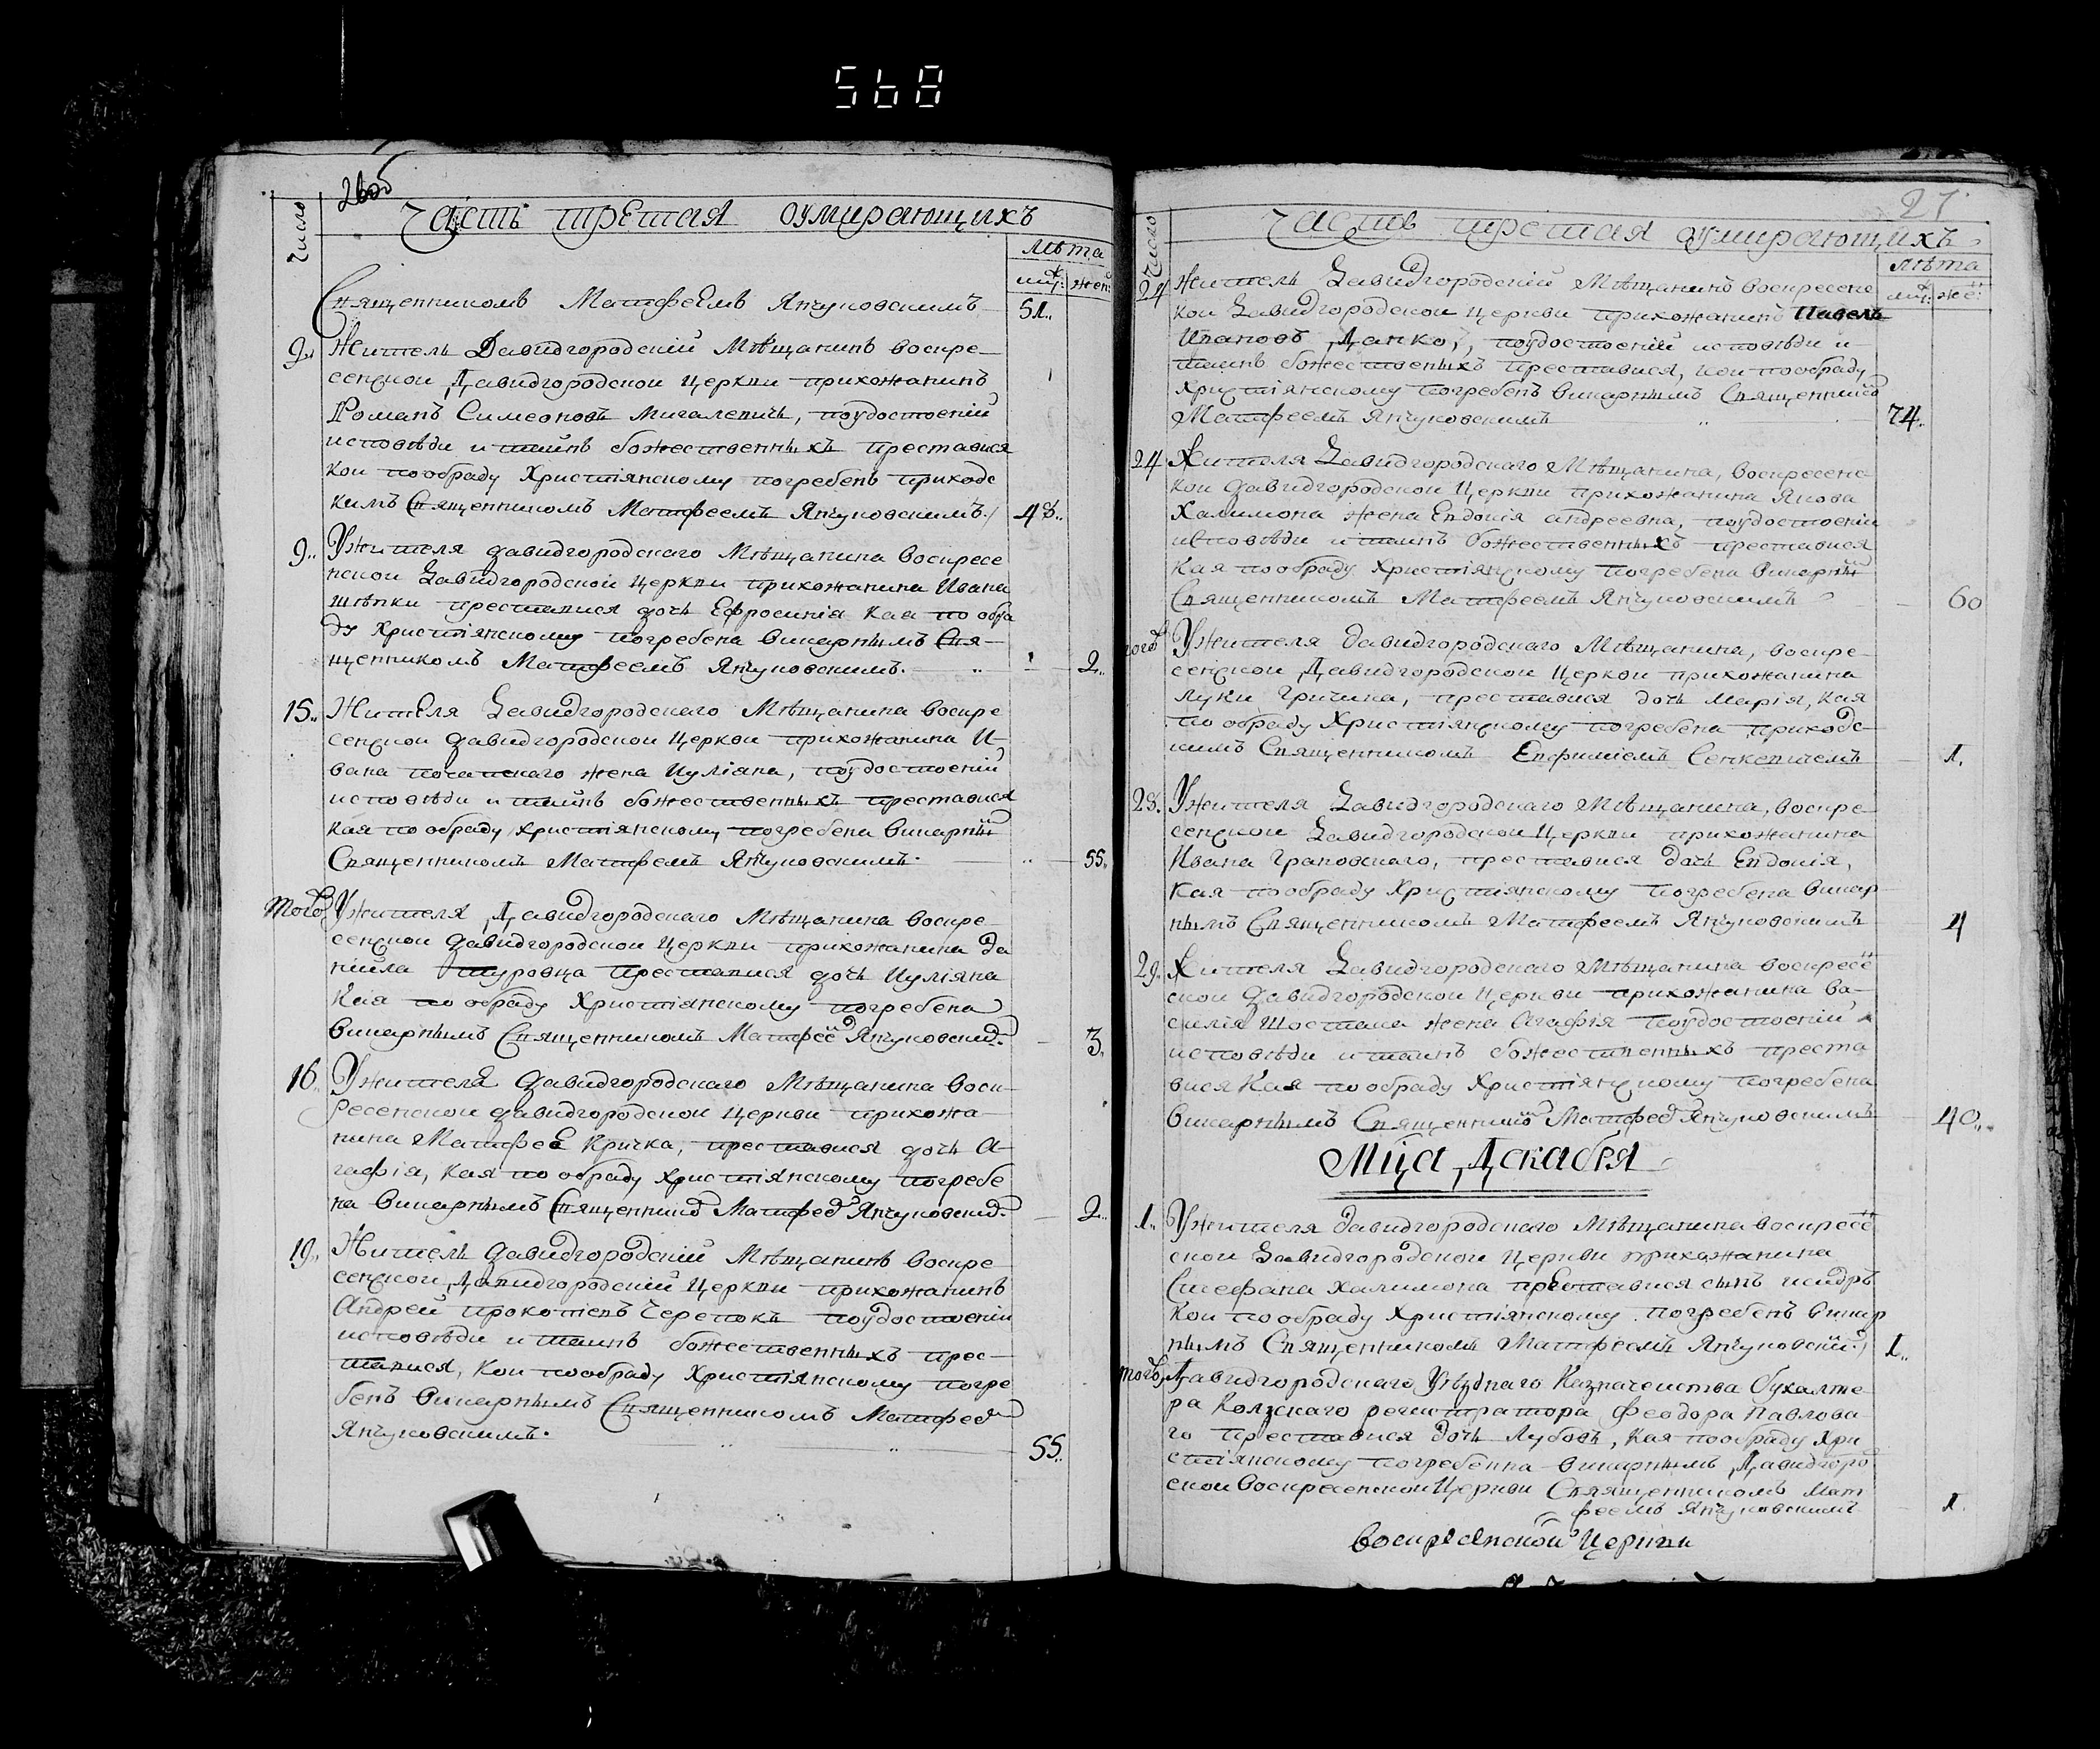 568
26об
Часть третая оумирающихъ
Число
лѣта
муж: жен:
Священникомъ Матфеемъ Янчуковскимъ 51..
9.. Житель Давидгородскій Мѣщанинъ воспре-
сенской Давидгородской Церкви прихожанинъ
Романъ Симеоновъ Мигалевичъ, поудостоеніи
исповѣди и таинъ божественныхъ преставися
кои пообраду Христіянскому погребенъ приходс
кимъ Священникомъ Матфеемъ Янчуковскимъ. 48..
9.. Ужителя Давидгородскаго Мѣщанина воспресе
нской Давидгородской Церкви прихожанина Ивана
преставися дочь Ефросинія кая по обра
ду Христіянскому погребена викарнымъ Свя-
щенникомъ Матфеемъ Янчуковскимъ. 2..
15.. Жителя Давидгородскаго Мѣщанина воспре
сенской Давидгородской Церкви прихожанина И-
вана жена Иуліана, поудостоеніи
исповѣди и таинъ божественныхъ преставися
кая по обраду христіянскому погребена викарны
Священникомъ Матфемъ Янчуковскимъ. 55..
Того Ужителя Давидгородскаго Мѣщанина воспре-
сенской Давидгородской Церкви прихожанина Да
ниила Туровца преставися дочь Иуліяна
Кая по обраду Христіянскому погребена
викарнымъ Священникомъ Матфее Янчуковски. 3.
16.. Ужителя Давидгородскаго Мѣщанина восп-
ресенской Давидгородской Церкви прихожа-
нина Матфея Кричка, преставися дочь А-
гафія, кая по обраду христіянскому погребе
на викарнымъ Священник Матфее Янчуковски. 2..
19.. Житель Давидгородскій Мѣщанинъ воспре
сенской Давидгородскій Церкви прихожанинъ
Андрей Прокопіевъ Черепокъ поудостоеніи
исповѣди и таинъ божественныхъ прес-
тавися, кои пообраду Христіянскому погре
бенъ викарнымъ Священникомъ Матфее
Янчуковскимъ. 55..
27.
Часть третая оумирающихъ
Число
лѣта
муж: же:
24 Житель Давидгородскій Мѣщанинъ воспресенс
кои Давидгородской Церкви прихожанинъ Павелъ
Ивановъ Данко, поудостоеніи исповѣди и
таинъ божественныхъ преставися, кои пообраду
христіянскому погребенъ викарнымъ Священник
Матфеемъ Янчуковскимъ 74..
24 Жителя Давидгородскаго Мѣщанина, воспресенс
кои Давидгородской Церкви прихожанина Якова
Халимона жена Евдокія андреевна, поудостоеніи
исповѣди и таинъ божественныхъ преставися
кая пообраду христіянскому погребена викарны
Священникомъ Матфеемъ Янчуковскимъ 60
тогоъ Ужителя Давидгородскаго Мѣщанина, воспре-
сенской Давидгородской Церкви прихожанина
Луки Гричина, преставися дочь Марія, кая
по обраду Христіянскому погребена приходс-
кимъ Священникомъ Евфиміемъ Сенкевичемъ 1.
28. Ужителя Давидгородскаго Мѣщанина, воспре-
сенской Давидгородской Церкви прихожанина
Ивана Грановскаго, преставися дочь Евдокія,
кая пообраду христіянскому погребена викар
нымъ Священникомъ Матфеемъ Янчуковскимъ 4
29. Жителя Давидгородскаго Мѣщанина воспресе
ской Давидгородской Церкви прихожанина Ва-
силія Шостака жена Агафія поудостоеніи
исповѣди и таинъ божественныхъ преста
вися Кая по обраду Христіянскому погребена
викарнымъ Священник Матфее Янчуковскимъ 40..
Мца Декабря
1.. Ужителя Давидгородскаго Мѣщанина воспресе
ской Давидгородской Церкви прихожанина
Стефана Халимона преставися сынъ исидръ
Кои по обраду Христіянскому погребенъ викар
нымъ Священникомъ Матфеемъ Янчуковски. 1..
тогоъ Давидгородскаго Уѣзднаго Казначейства бухалте
ра Колзскаго регистратора Феодора Павлова
го преставися дочь Лубовъ, кая пообраду Хри
стіянскому погребенна викарнымъ Давидгоро
ской Воспресенской Церкви Священникомъ Мат
феемъ Янчуковскимъ 1.
Воспресенской Церкви